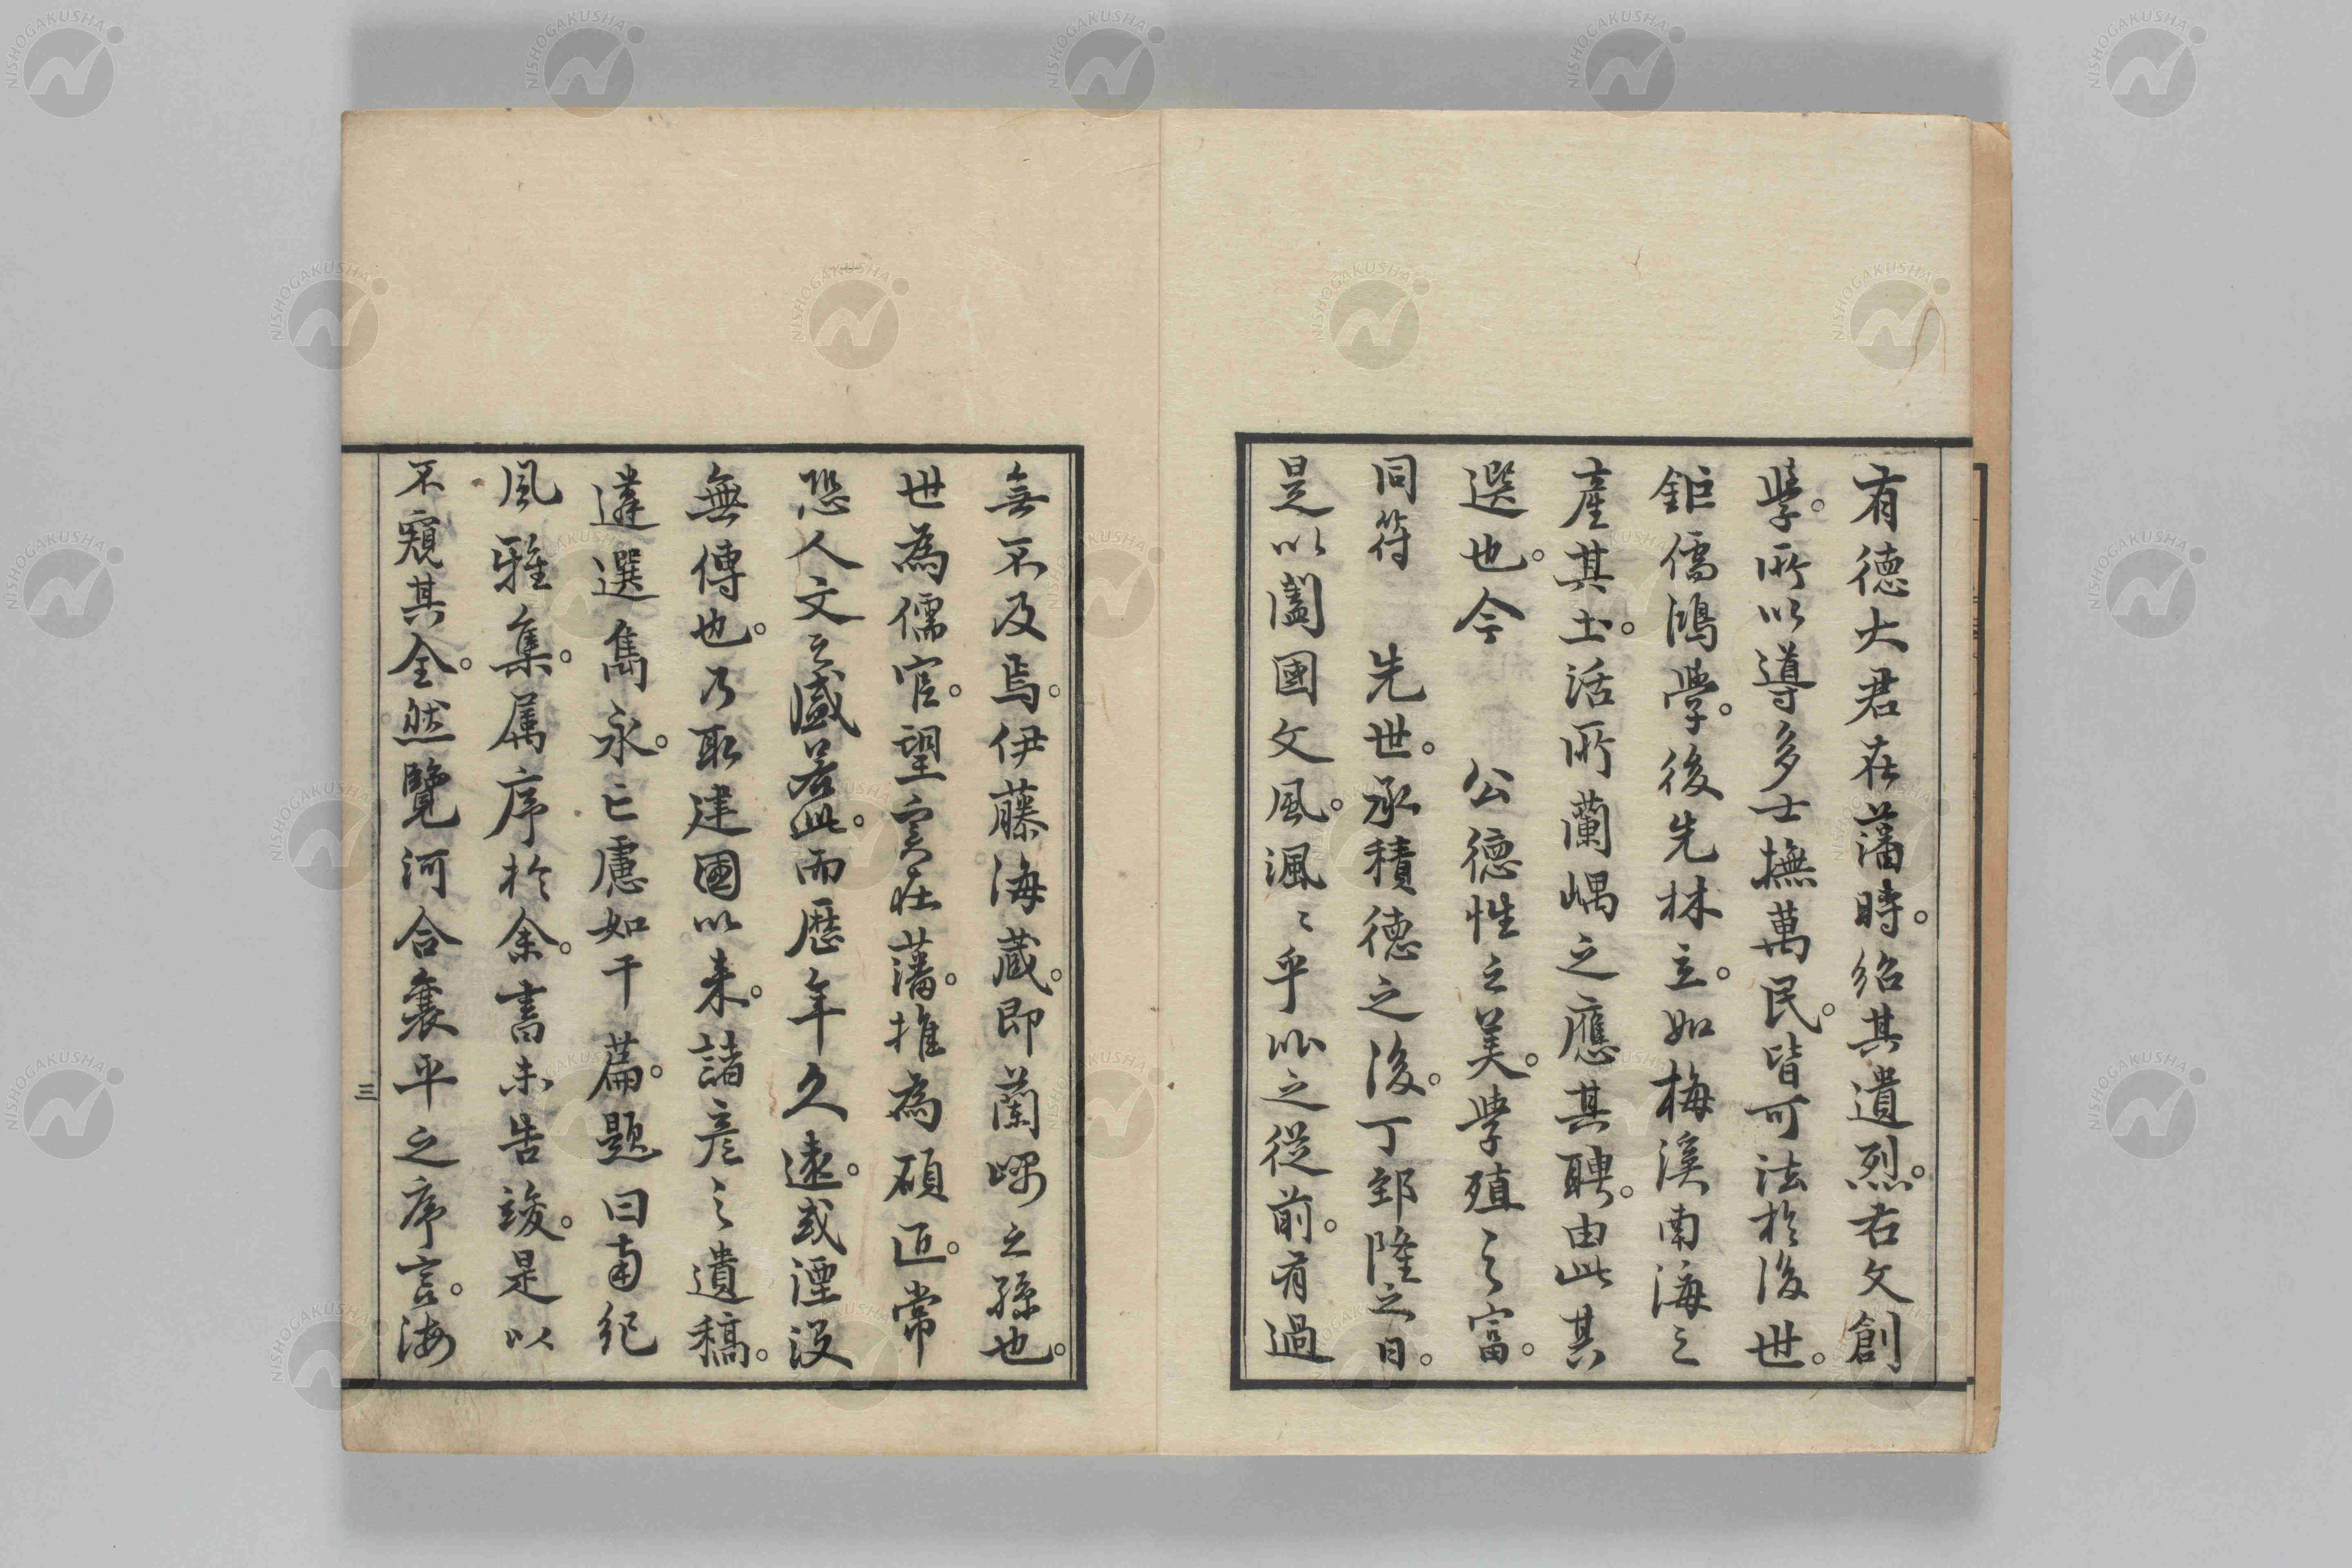 有德大君在藩時。紹其遺烈。右文創
學。所以導多士撫萬民。皆可法於後世。
鉅儒鴻學。後先林立。如梅溪南海之
產其土。活所蘭嵎之應其聘。由此其
選也。今　公德性之美。學殖之富。
同符　先世。承積德之後。丁郅隆之日。
是以闔國文風。渢〻乎以之從前。有過
無不及焉。伊藤海蔵。即蘭嵎之孫也。
世為儒官。望實在藩。推為碩匠。常
恐人文之盛若此。而歷年久遠。或湮没
無傳也。乃取建國以来。諸彥之遺稿。
遴選雋永。亡慮如干篇。題曰南紀
風雅集。属序於余。書未告竣。是以
不窺其全。然覽河合襄平之序言。海
三
NISHOGAKUSHA